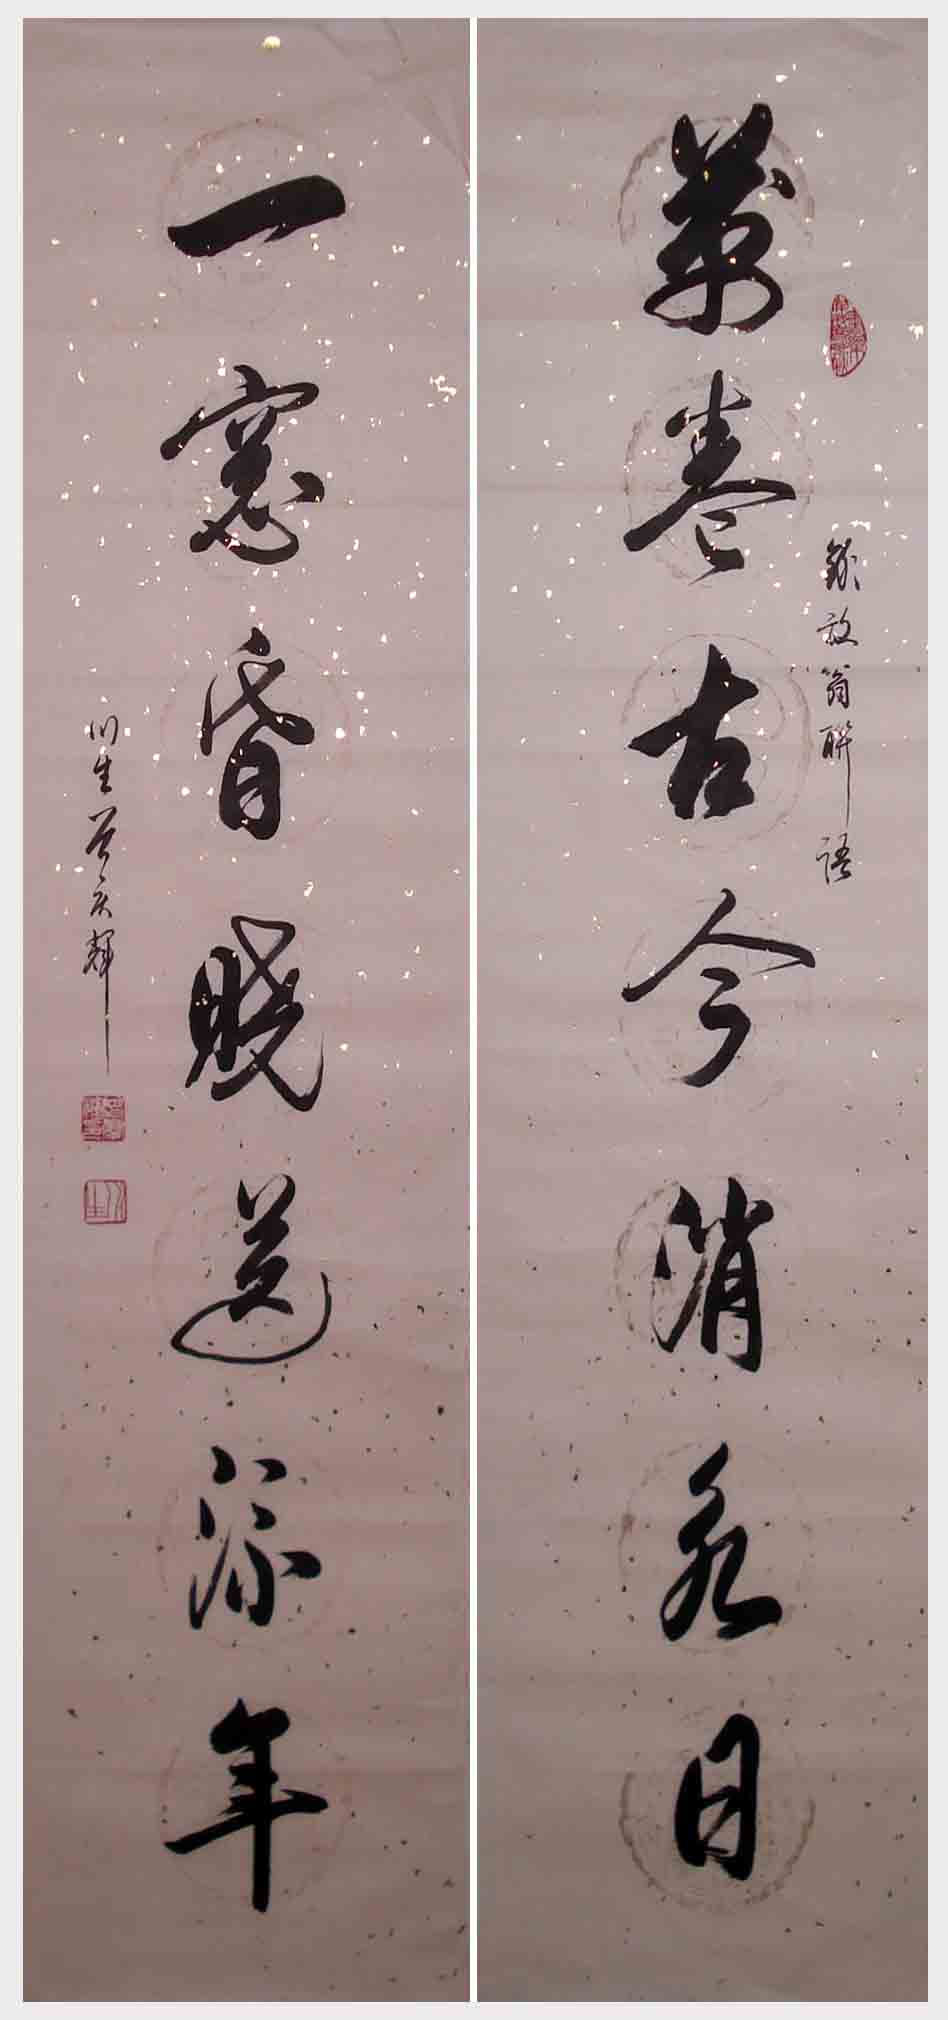 錄放翁聯語
萬卷古今消永日
一窻昏曉送流年
川生曾庆輝